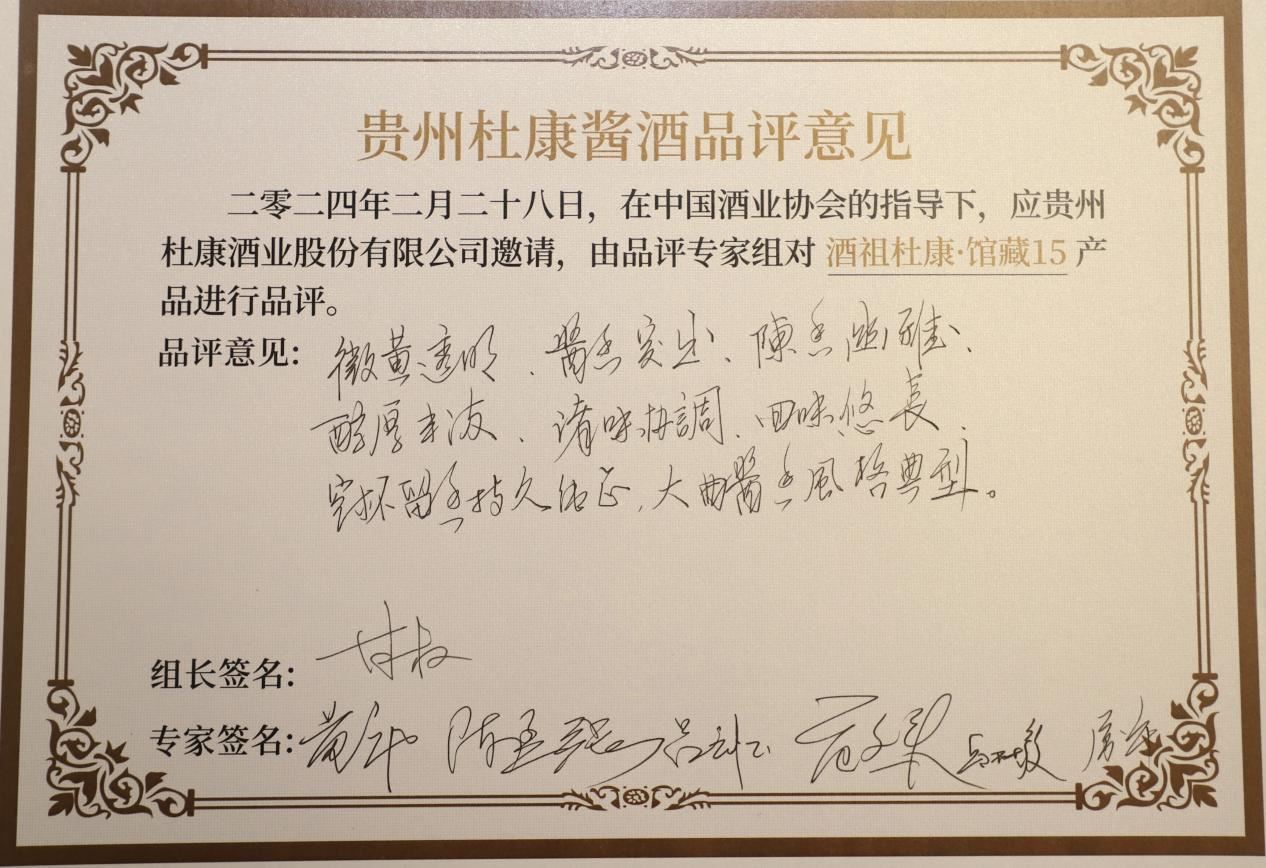 贵州杜康酱酒品评意见
二零二四年二月二十八日，在中国酒业协会的指导下，应贵州
杜康酒业股份有限公司邀请，由品评专家组对 酒祖杜康·馆藏15 产
品进行品评。
品评意见：微黄透明、醬香突出、陳香幽雅、
醇厚丰满、诸味协調、回味悠长、
空杯留香持久纯正，大曲醬香風格典型。
组长签名：甘权
专家签名：